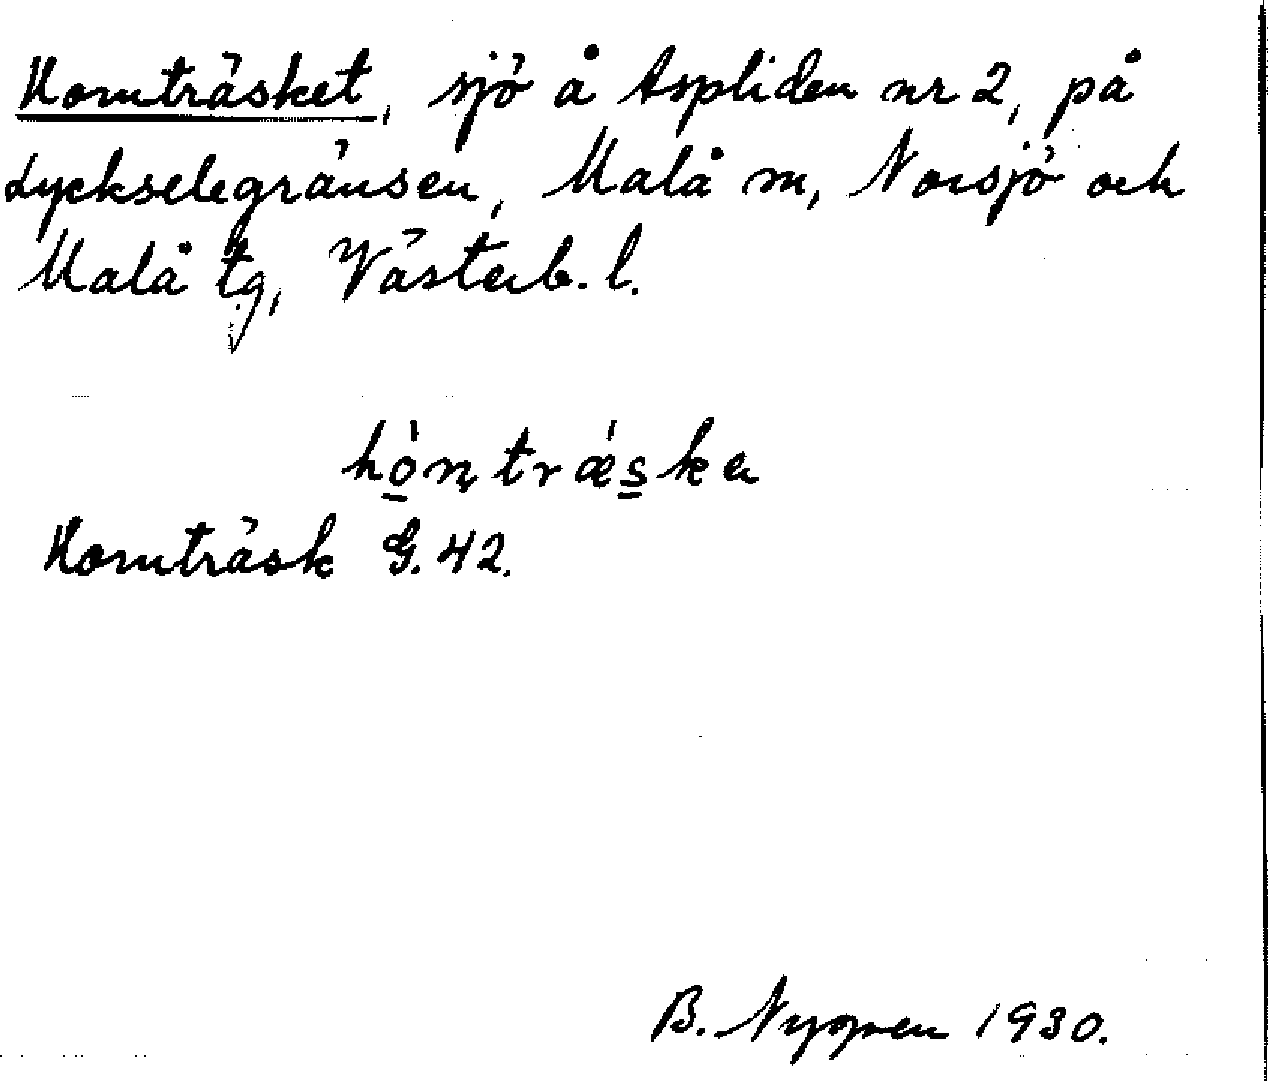 Hornträsket, sjö å Aspliden nr 2, på
Lyckselegränsen, Malå sn, Norsjö och
Malå tg, Västerb. l.
hò̲ɳtrǽs̲ka
Hornträsk G. 42.
B. Nygren 1930.